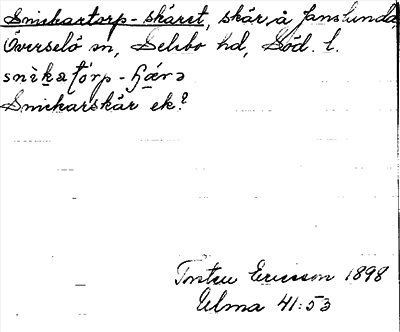 Snickartorp-skäret, skär å Janslunda,
Överselö sn, Selebo hd, Söd. l.
snìkatórp-ʃǽrə
Snickarskär ek?
Torsten Ericsson 1898
Ulma 41:53